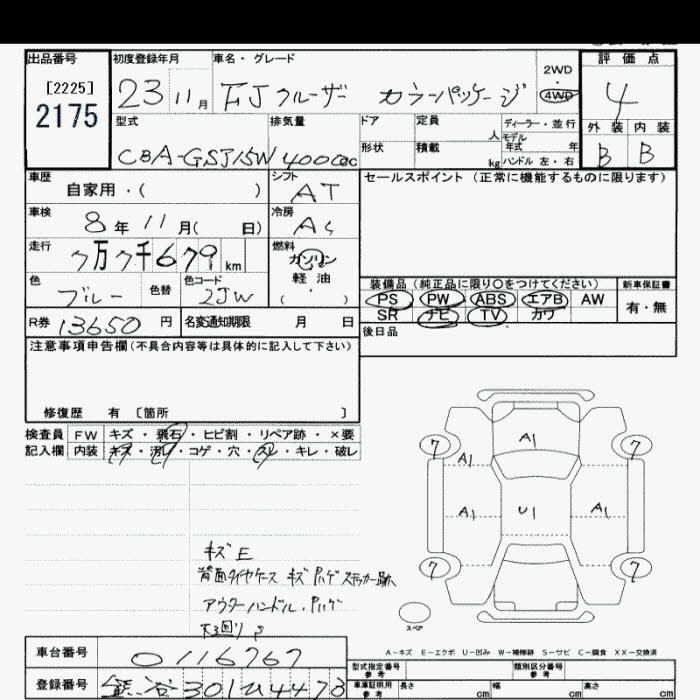 出品番号 初度登録年月 車名・グレード 2WD 評価点
[2225] 23 11月 FJクルーザー カラーパッケージ 4WD 4
2175 型式 排気量 ドア 定員 人 ディーラー・並行 外装 内装
CBA-GSJ15W 4000cc 形状 積載 kg モデル年式 年 ハンドル 左・右 B B
車歴 自家用・( ) シフト AT セールスポイント (正常に機能するものに限ります)
車検 8年 11月( 日) 冷房 AC
走行 7万7千679km 燃料 ガソリン 軽油 ( ・ )
色 ブルー 色替 色コード 2JW 装備品 (純正品に限り〇をつけてください) 新車保証書
PS PW ABS エアB AW 有・無
R券 13650円 名変通知期限 月 日 SR ナビ TV カワ
後日品
注意事項申告欄 (不具合内容等は具体的に記入して下さい)
修復歴 有 [箇所 ]
検査員 FW キズ・飛石・ヒビ割・リペア跡・×要
記入欄 内装 キズ・汚レ・コゲ・穴・スレ・キレ・破レ
A1
7 7
A1
A1 U1 A1
7 7
キズE
背面タイヤケース キズ ハゲ ステッカー跡
アウターハンドル.ハゲ
下回りS
スペア
A-キズ E-エクボ U-凹み W-補修跡 S-サビ C-腐食 XX-交換済
車台番号 0116767 型式指定番号 参考 類別区分番号 参考
登録番号 301 4478 車庫証明用 参考 長さ cm 幅 cm 高さ cm